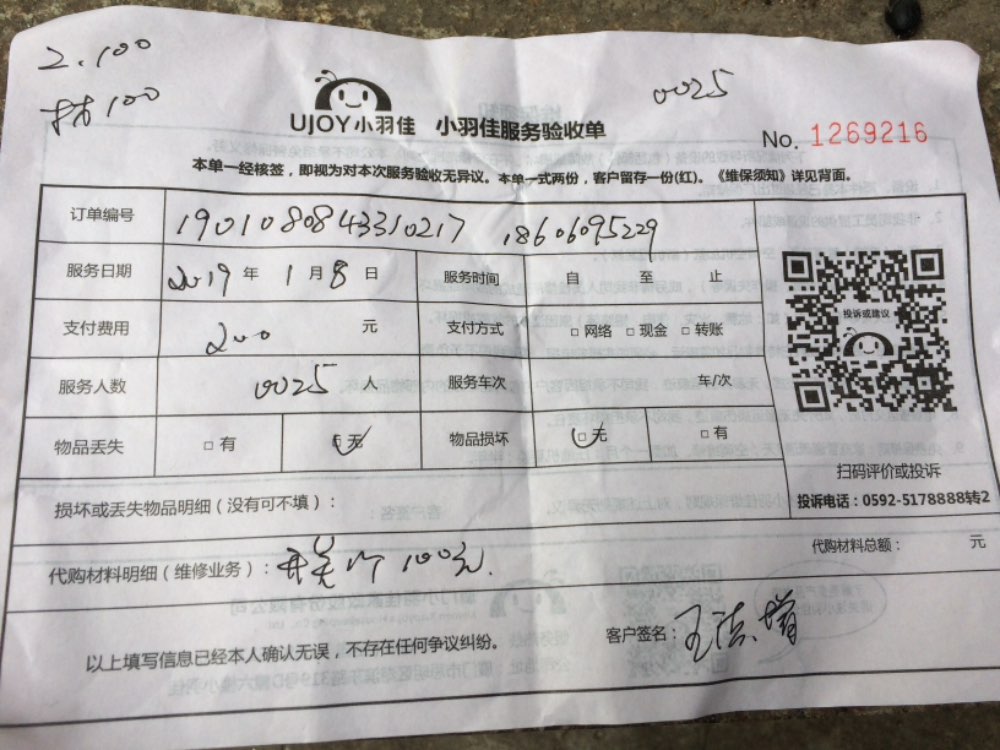 2.100
材100
0025
UJOY小羽佳 小羽佳服务验收单
No. 1269216
本单一经核签，即视为对本次服务验收无异议。本单一式两份，客户留存一份(红)。《维保须知》详见背面。
订单编号 1901080843310217 18606095229
服务日期 2019年1月8日 服务时间 自 至 止
支付费用 200 元 支付方式 □网络 □现金 □转账
投诉或建议
服务人数 0025 人 服务车次 年/次
物品丢失 □有 □无 物品损坏 □无 □有
扫码评价或投诉
投诉电话：0592-5178888转2
损坏或丢失物品明细（没有可不填）：
代购材料明细（维修业务）：开关1个100元. 代购材料总额： 元
以上填写信息已经本人确认无误，不存在任何争议纠纷。 客户签名：